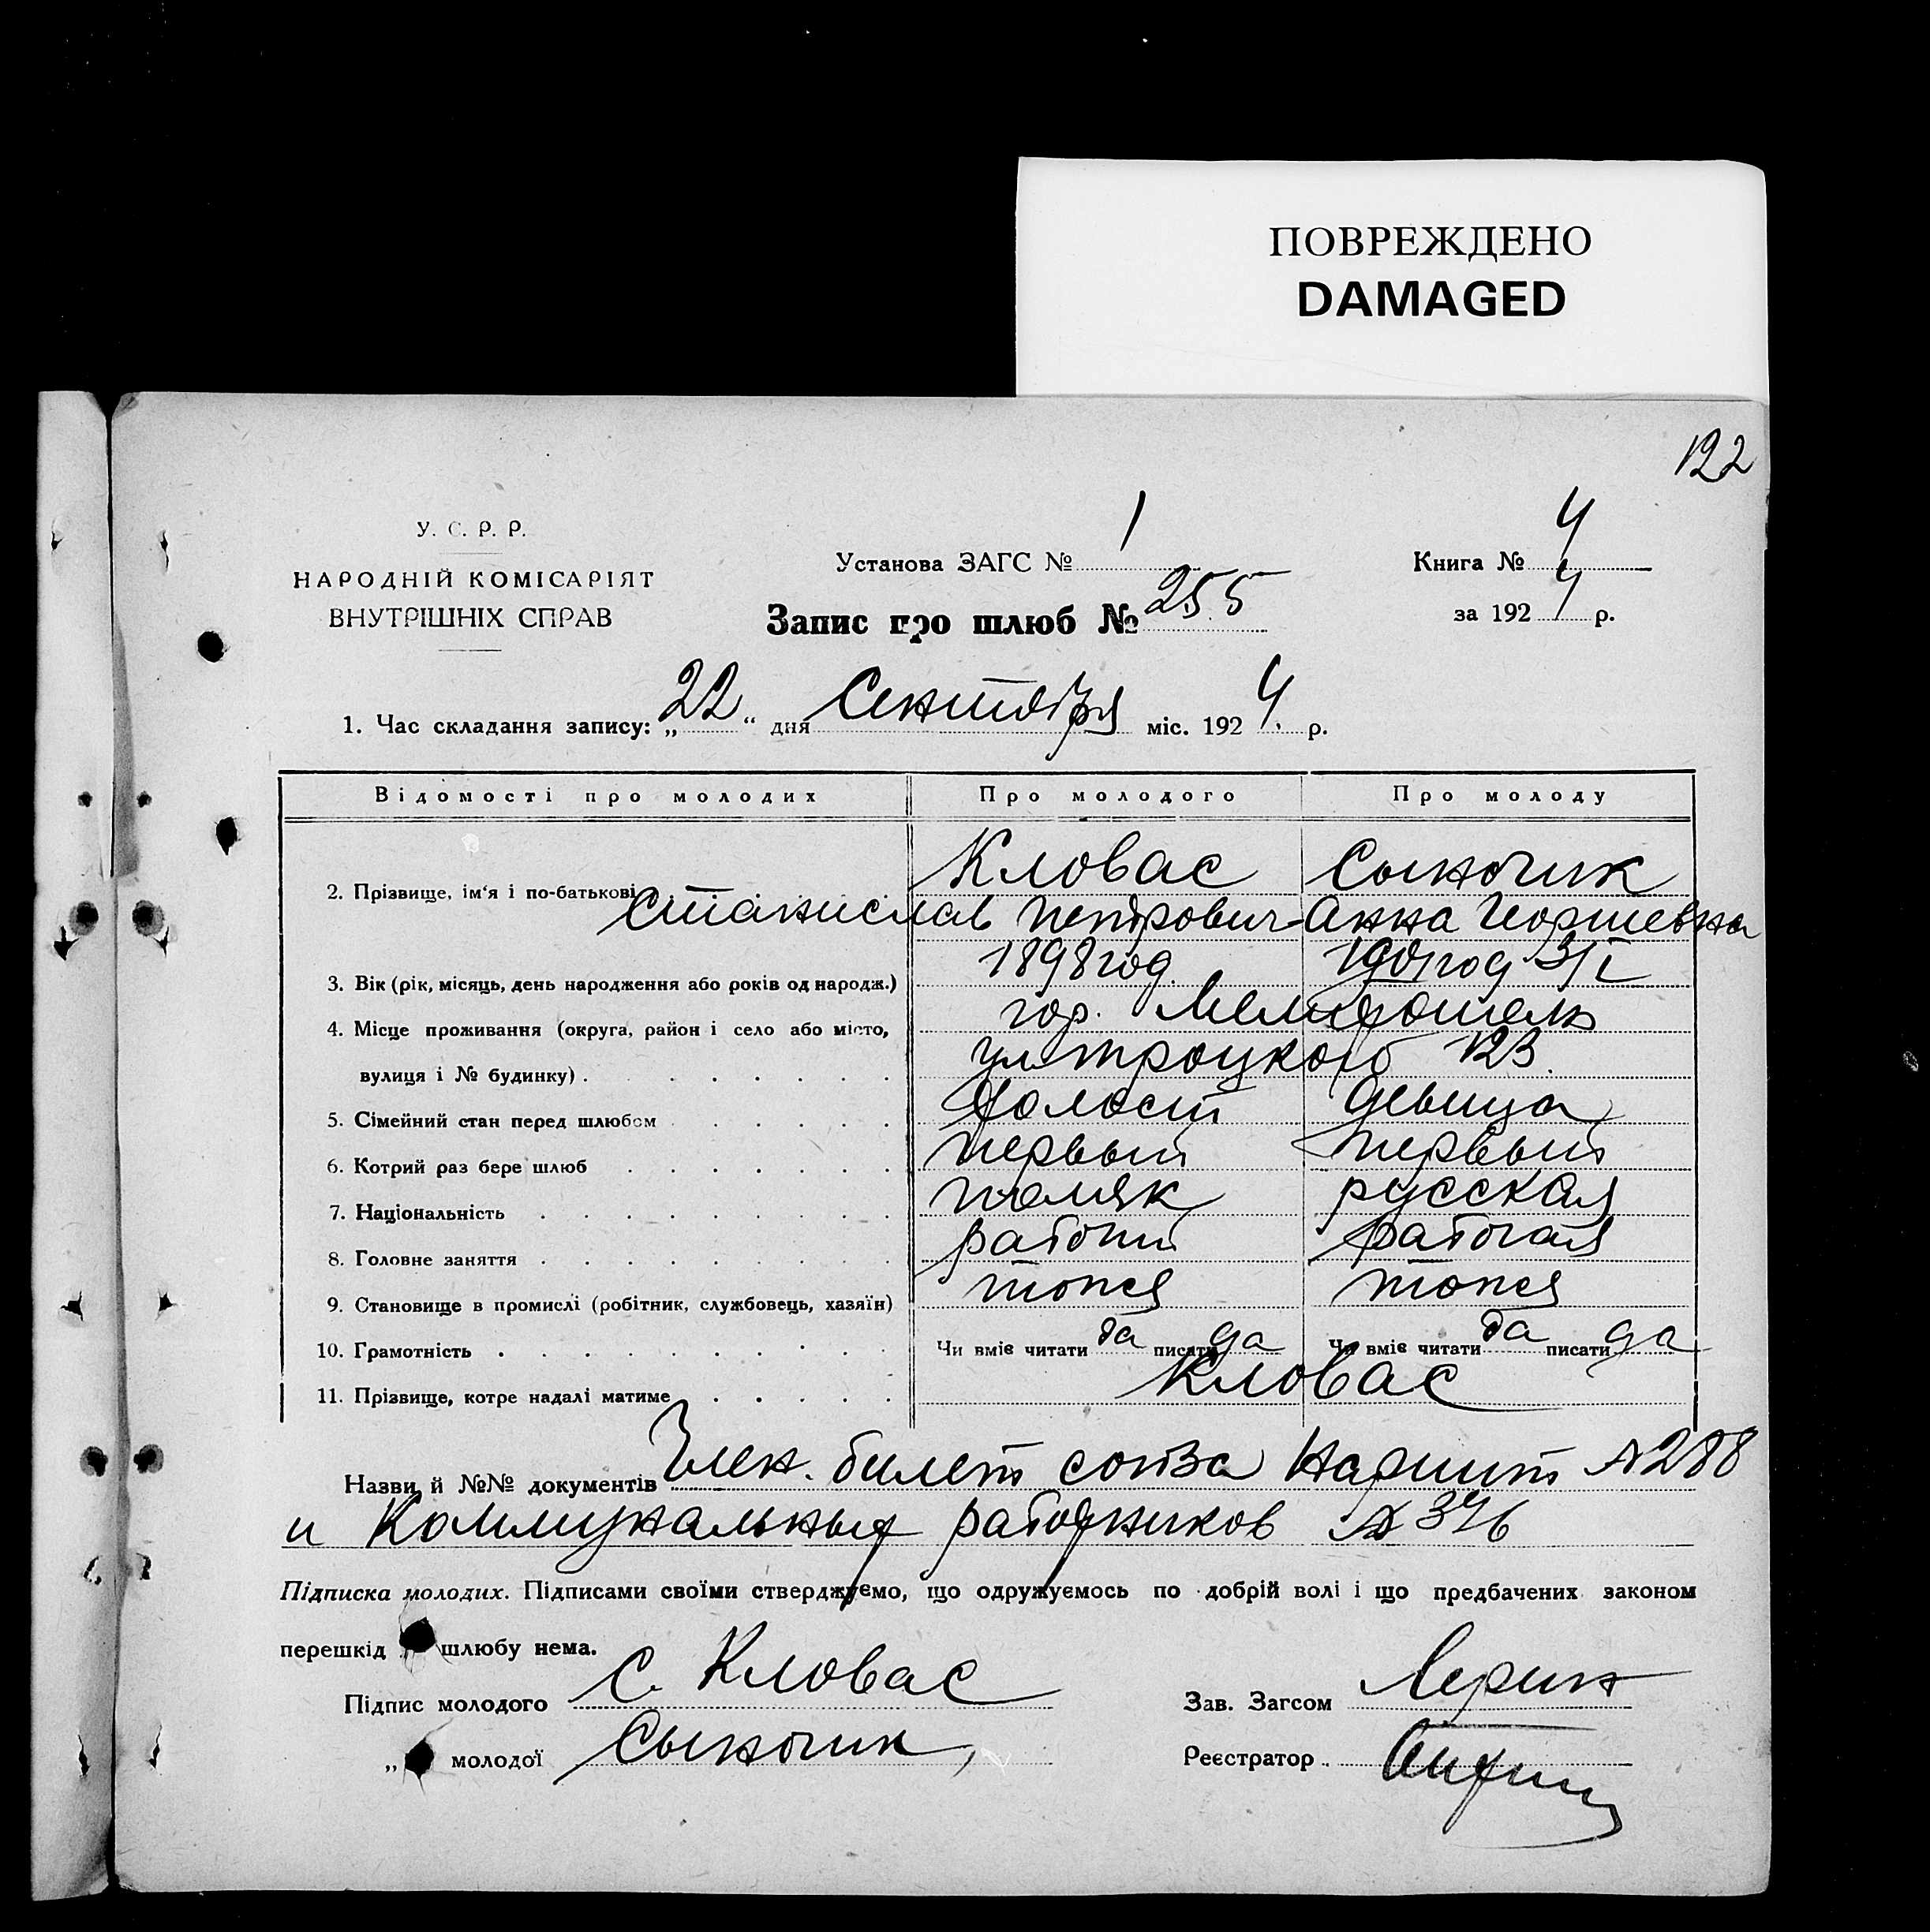 ПОВРЕЖДЕНО
DAMAGED
122
У. С. Р. Р.
НАРОДНІЙ КОМІСАРІЯТ
ВНУТРІШНІХ СПРАВ
Установа ЗАГС № 1
Запис про шлюб № 255
Книга № 4
за 1924 р.
1. Час складання запису: „22“ дня Сентября міс. 1924. р.
Відомості про молодих Про молодого Про молоду
2. Прізвище, ім‘я і по-батькові Кловас Сыночик
Станислав Петрович Анна Георгиевна
3. Вік (рік, місяць, день народження або років од народж.) 1898 год 1901 год 3/I
4. Місце проживання (округа, район і село або місто, гор. Мелитополь
вулиця і № будинку) . ул Троцкого 123.
5. Сімейний стан перед шлюбом Холост девица
6. Котрий раз бере шлюб первый первый
7. Національність поляк русская
8. Головне заняття рабочий рабочая
9. Становище в промислі (робітник, службовець, хазяїн)
10. Грамотність Чи вміє читати да писати да Чи вміє читати да писати да
11. Прізвище, котре надалі матиме Кловас
Назви й №№ документів Член. билет союза Нарпит № 288
и Коммунальных работников № 346
Підписка молодих. Підписами своїми стверджуємо, що одружуємось по добрій волі і що предбачених законом
перешкід шлюбу нема.
Підпис молодого С. Кловас Зав. Загсом
„ молодої Сыночик Реєстратор